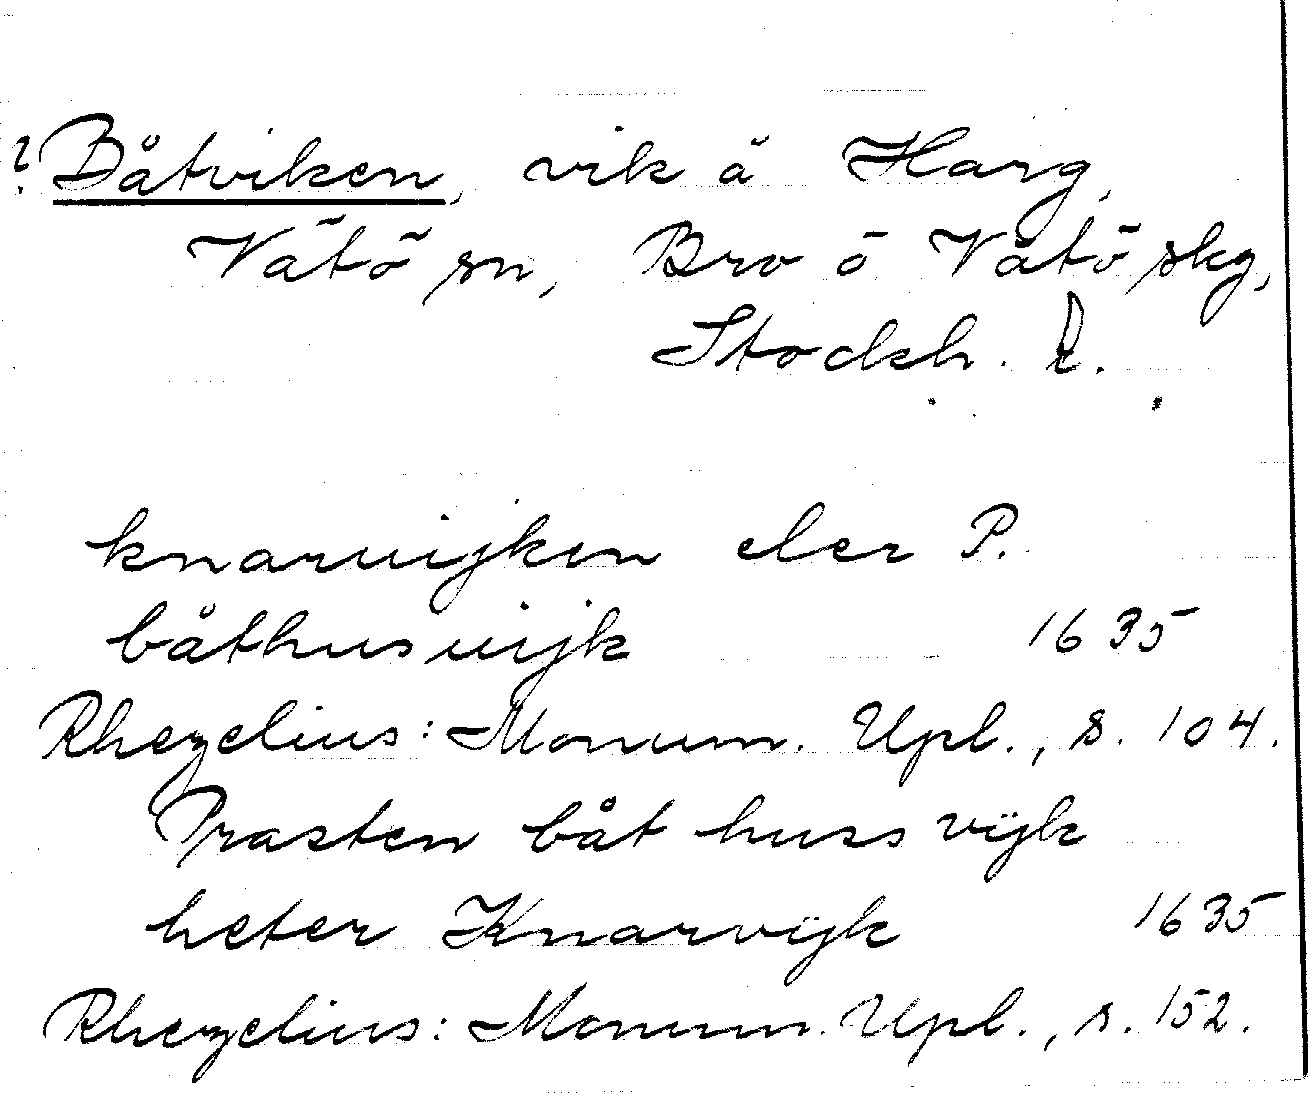 ? Båtviken, vik å Harg,
Vätö sn, Bro o Vätö skg,
Stockh. l.
knarvijken eler P.
båthusvijk 1635
Rhezelius: Monum. Upl., s. 104.
Prasten båt huss vijk
heter Knarvijk 1635
Rhezelius: Monum. Upl., s. 152.